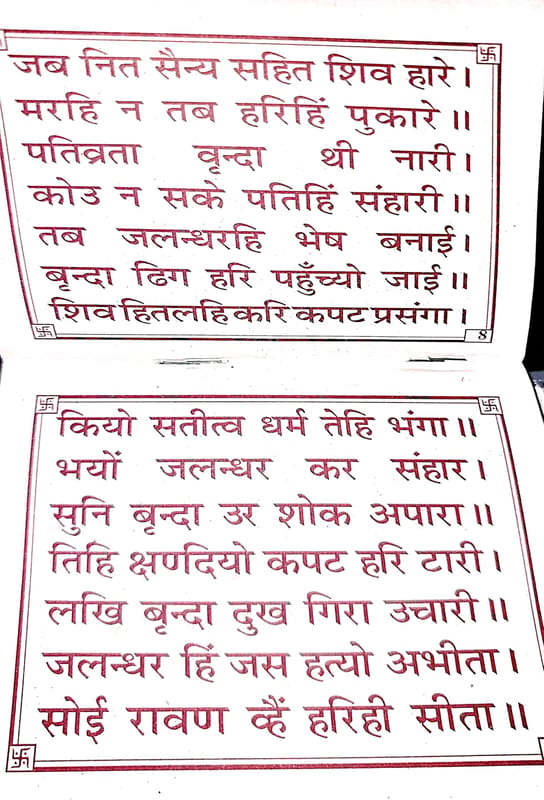 जब नित सैन्य सहित शिव हारे।
मरहि न तब हरिहिं पुकारे॥
पतिव्रता वृन्दा थी नारी।
कोउ न सके पतिहिं संहारी॥
तब जलन्धरहि भेष बनाई।
बृन्दा ढिग हरि पहुँच्यो जाई॥
शिव हित लहि करि कपट प्रसंगा।
8
कियो सतीत्व धर्म तेहि भंगा॥
भयों जलन्धर कर संहार।
सुनि बृन्दा उर शोक अपारा॥
तिहि क्षण दियो कपट हरि टारी।
लखि बृन्दा दुख गिरा उचारी॥
जलन्धर हिं जस हत्यो अभीता।
सोई रावण व्हैं हरिही सीता॥